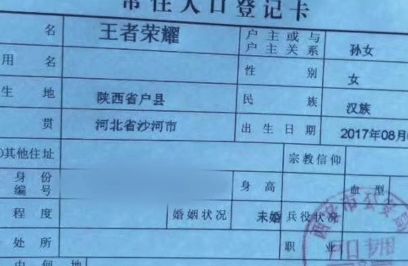 常住人口登记卡
名 王者荣耀 户主或与户主关系 孙女
用名 性别 女
生地 陕西省户县 民族 汉族
贯 河北省沙河市 出生日期 2017年08月
其他住址 宗教信仰
身份编号 身高 血型
程度 婚姻状况 未婚 兵役状况
处所 职业